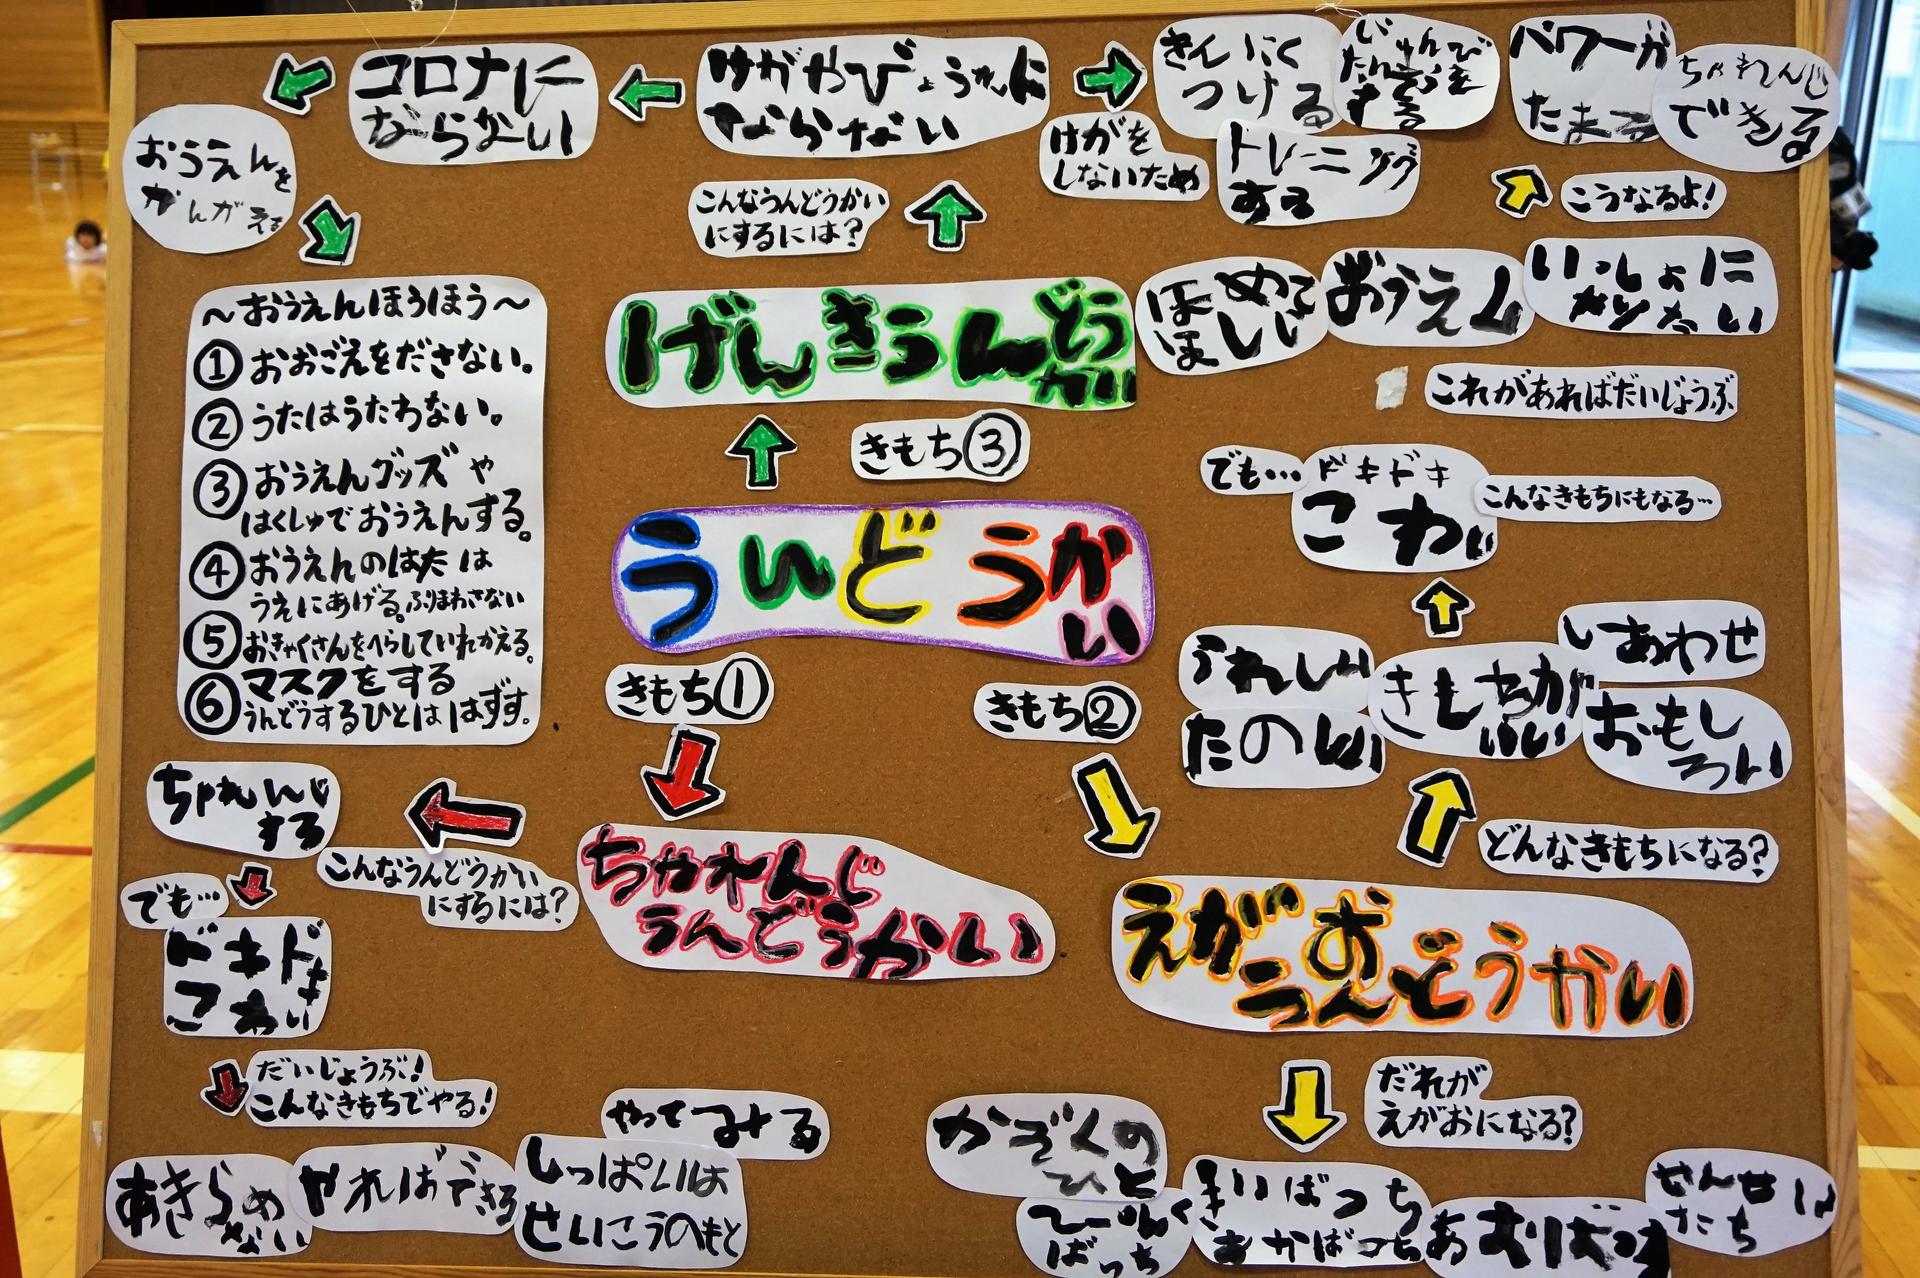 コロナに
ならない
けがやびょうきに
ならない
きんにく
つける
じゅんび
たいそうを
する
パワーが
たまる
ちゃれんじ
できる
おうえんを
かんがえる
けがを
しないため
トレーニング
する
こんなうんどうかい
にするには？
こうなるよ！
～おうえんほうほう～
①おおごえをださない。
②うたはうたわない。
③おうえんグッズや
はくしゅでおうえんする。
④おうえんのはたは
うえにあげる。ふりまわさない
⑤おきゃくさんをへらしていれかえる。
⑥マスクをする
うんどうするひとははずす。
げんきうんどう
かい
ほめて
ほしい
おうえん
いっしょに
やりたい
これがあればだいじょうぶ
きもち③
でも…
ドキドキ
こわい
こんなきもちにもなる…
うんどうか
い
きもち①
きもち②
うれしい
たのしい
きもちが
いい
しあわせ
おもし
ろい
どんなきもちになる？
ちゃれんじ
する
こんなうんどうかい
にするには？
でも…
ドキドキ
こわい
ちゃれんじ
うんどうかい
えがお
うんどうかい
だいじょうぶ！
こんなきもちでやる！
だれが
えがおになる？
あきらめ
ない
やればできる
やってみる
しっぱいは
せいこうのもと
かぞくの
ひと
ぴんく
ばっち
きいばっち
あかばっち
せんせい
たち